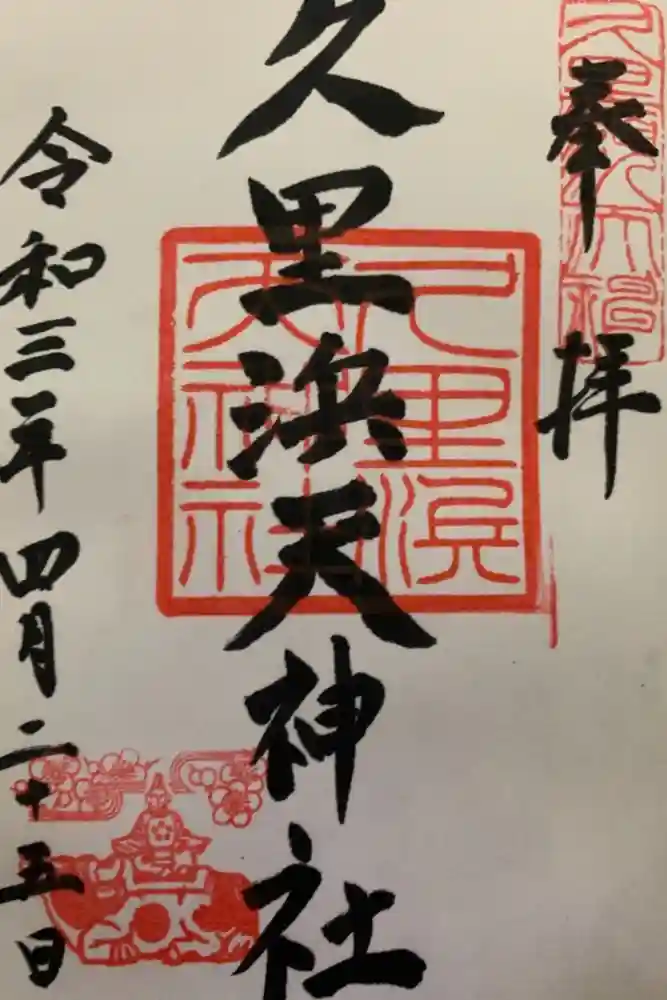 奉拝
久里浜天神社
久里浜天神社
令和三年四月二十五日